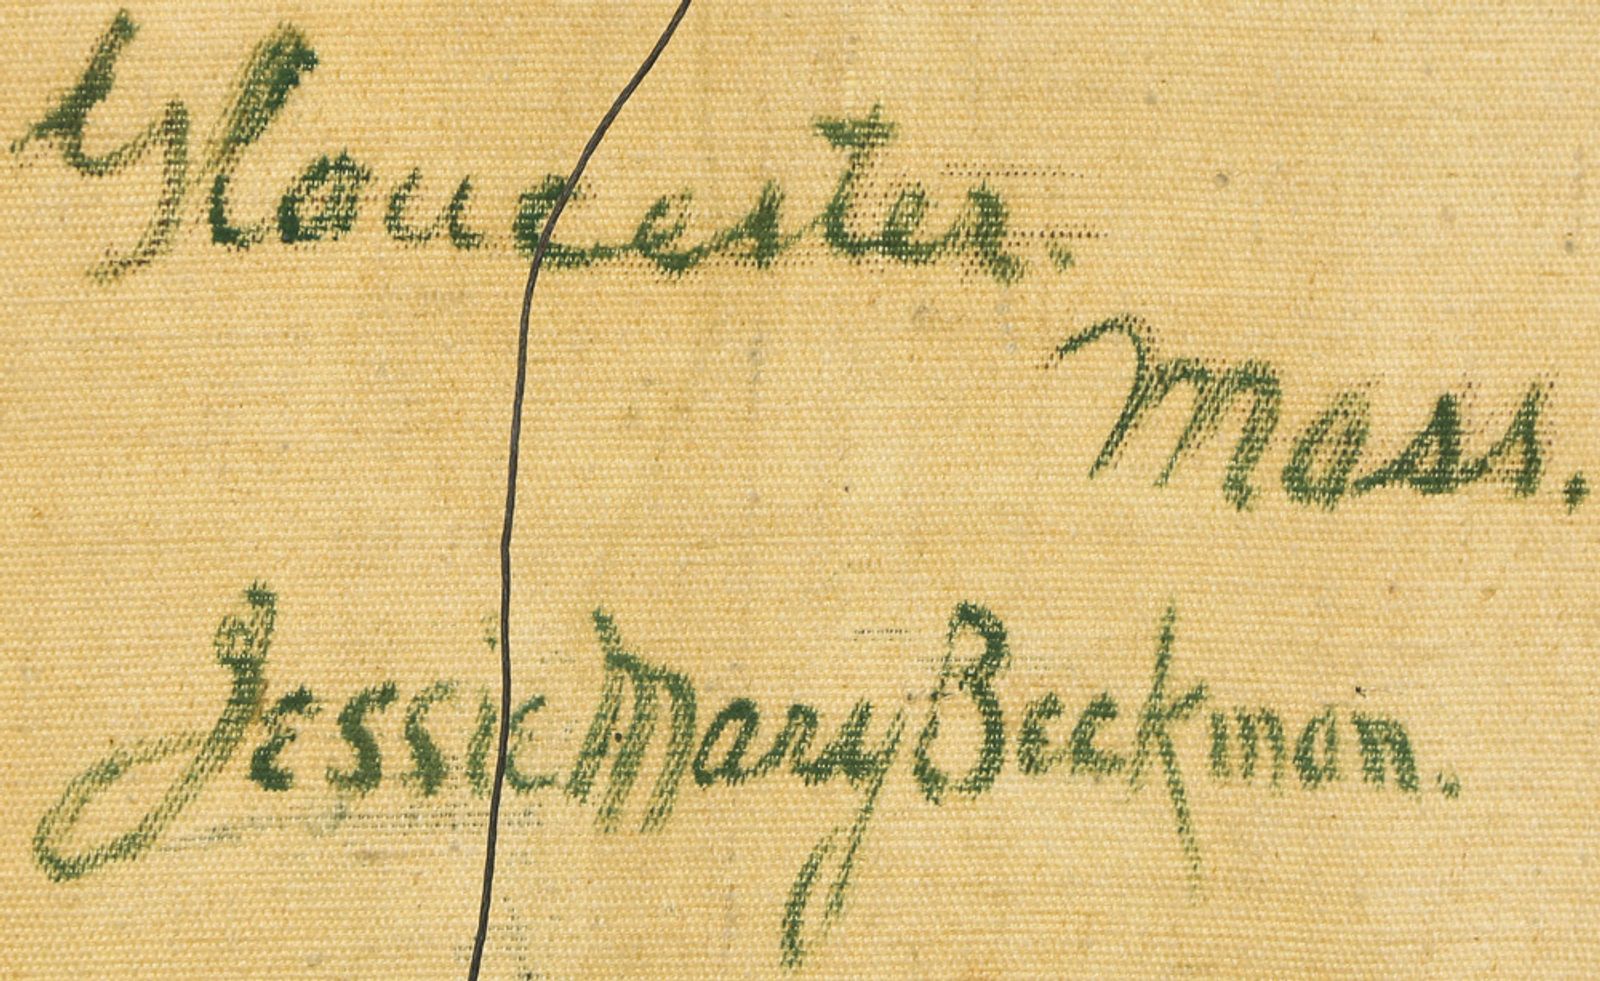 Gloucester.
Mass.
Jessie Mary Beckman.